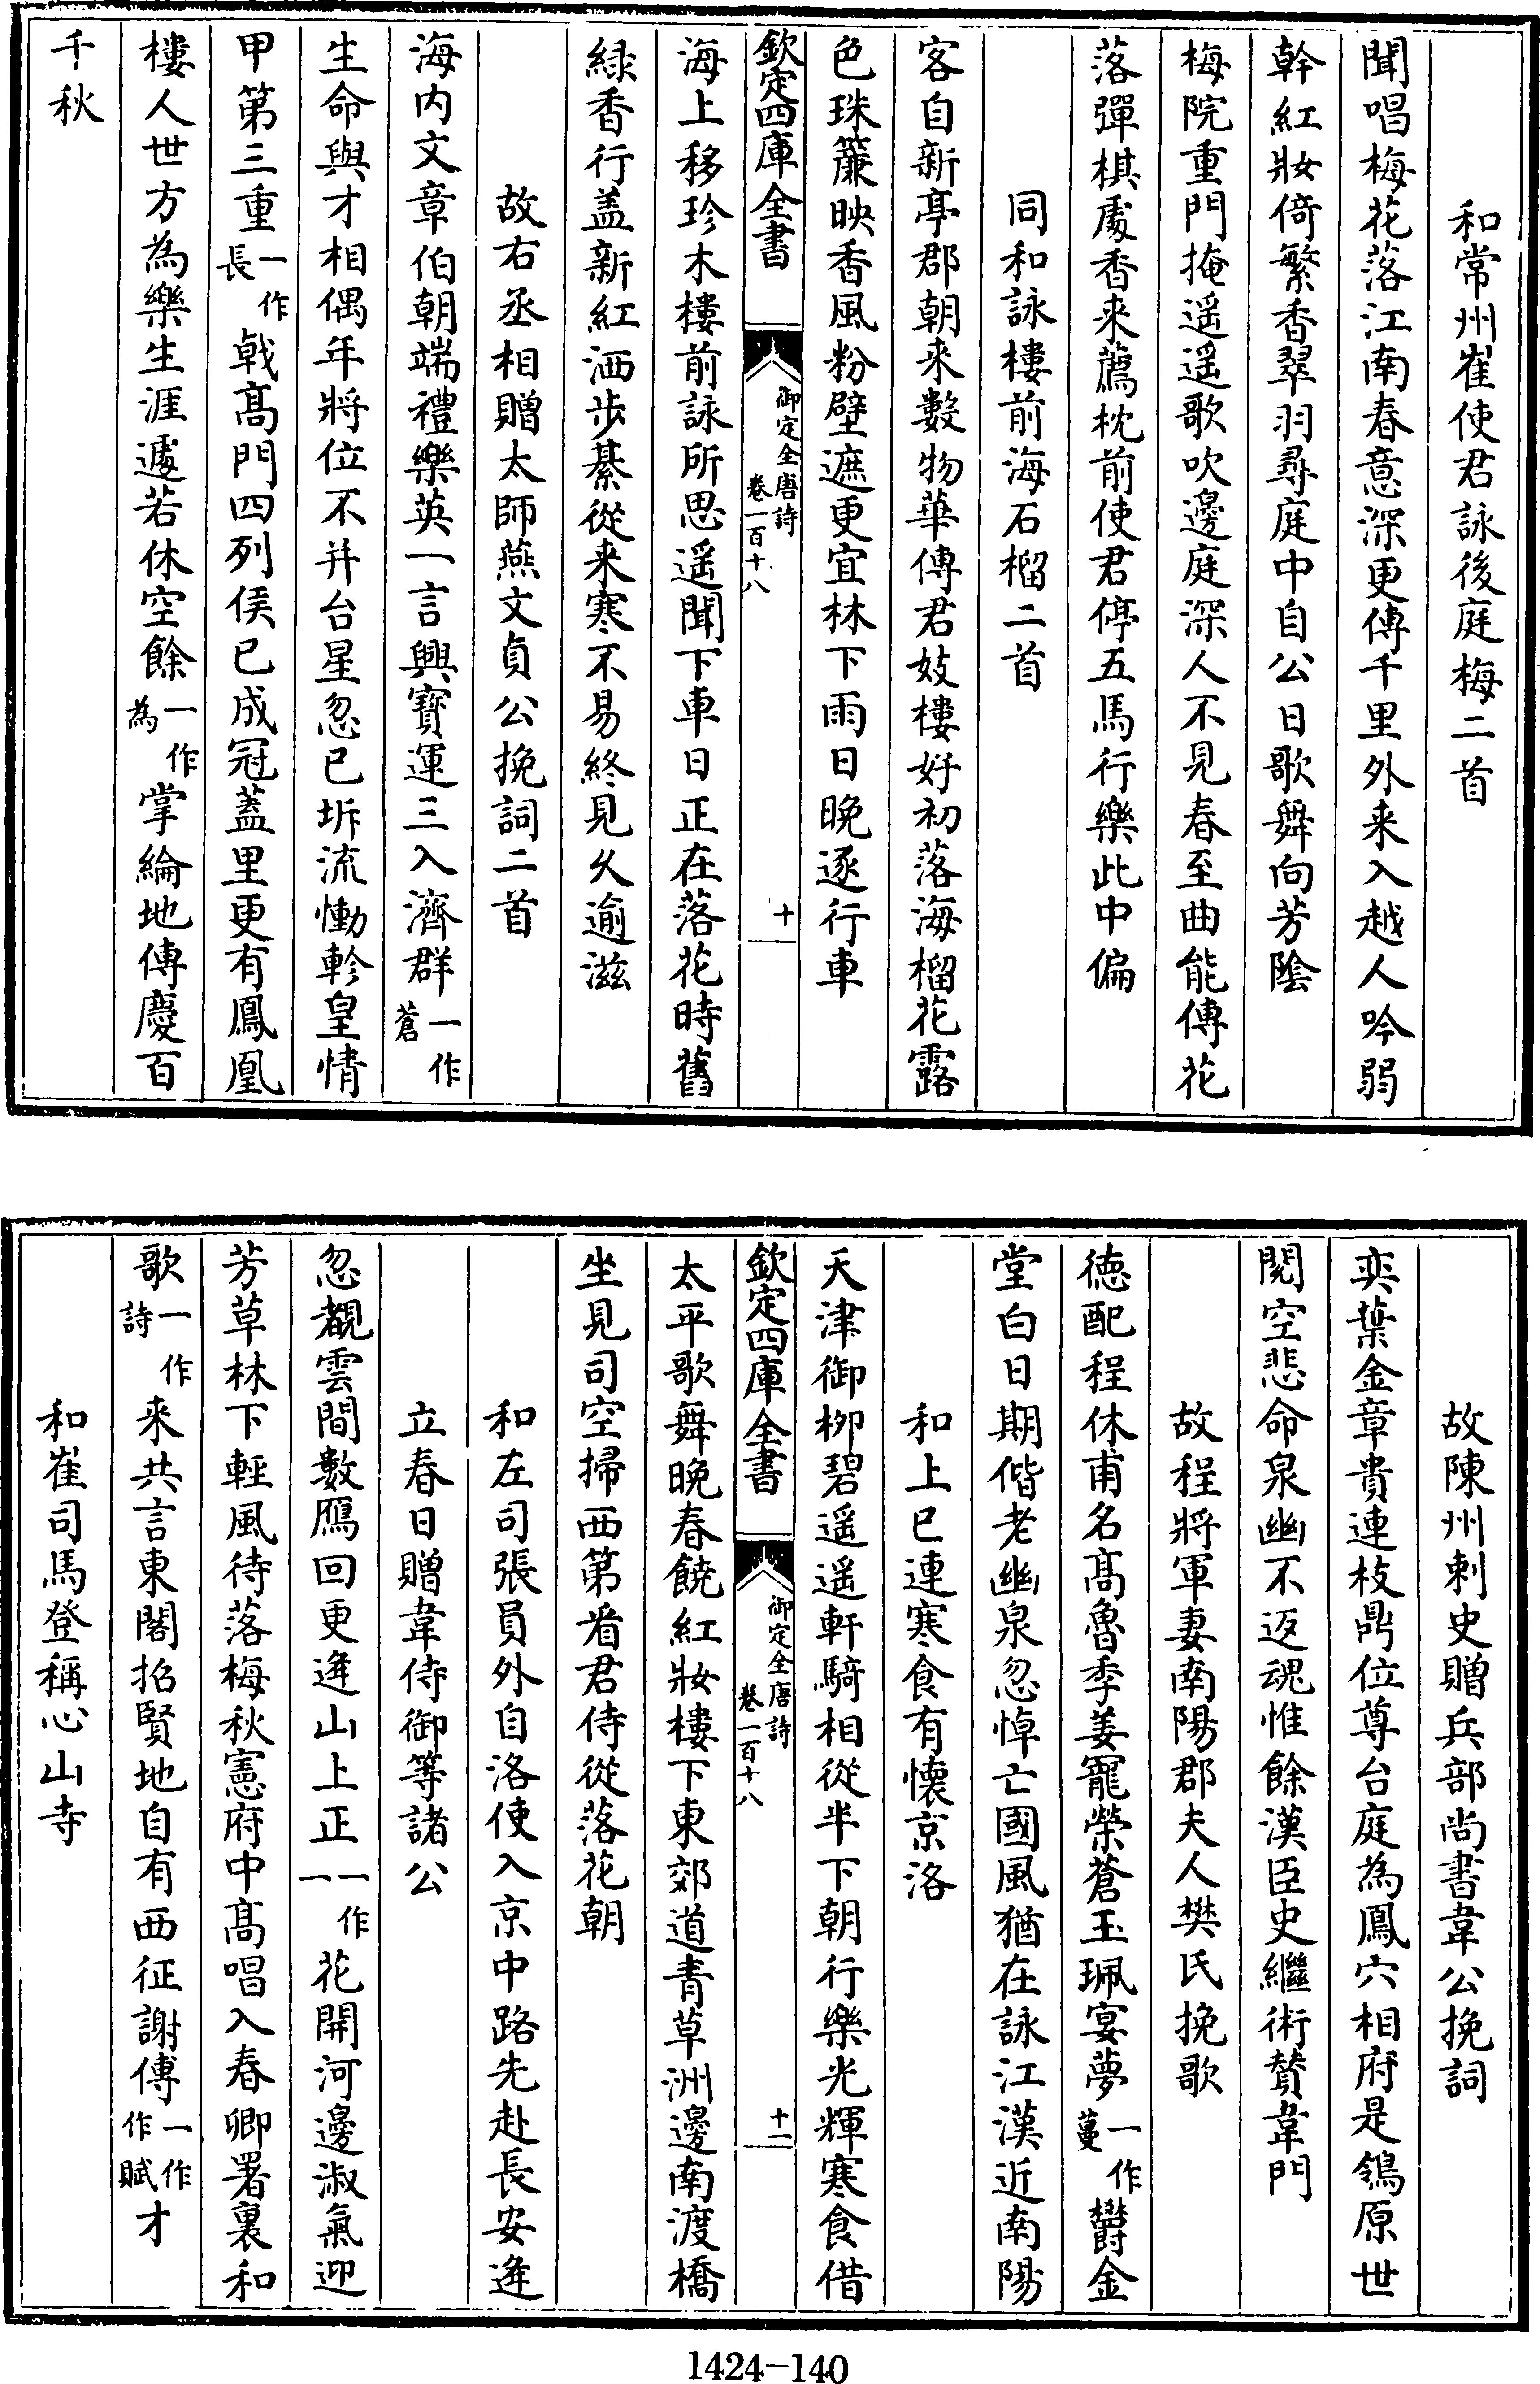 和常州崔使君詠後庭梅二首
聞唱梅花落江南春意深更傳千里外来入越人吟弱
幹紅妝倚繁香翠羽尋庭中自公日歌舞向芳陰
梅院重門掩遥遥歌吹邊庭深人不見春至曲能傳花
落彈棋處香來薦枕前使君停五馬行樂此中偏
同和詠樓前海石榴二首
客自新亭郡朝来數物華傳君妓樓好初落海榴花露
色珠簾映香風粉壁遮更宜林下雨日晚逐行車
欽定四庫全書
御定全唐詩
卷一百十八
十
海上移珍木樓前詠所思遥聞下車日正在落花時舊
緑香行盖新紅洒步綦從来寒不易終見久逾滋
故右丞相贈太師燕文貞公挽詞二首
海内文章伯朝端禮樂英一言興寳運三入濟群一作蒼
生命與才相偶年將位不并台星忽已坼流慟軫皇情
甲第三重一作長戟髙門四列侯已成冠蓋里更有鳳凰
樓人世方為樂生涯遽若休空餘一作為掌綸地傳慶百
千秋
故陳州刺史贈兵部尚書韋公挽詞
奕葉金章貴連枝鼎位尊台庭為鳳穴相府是鴒原世
閱空悲命泉幽不返魂惟餘漢臣史繼術賛韋門
故程將軍妻南陽郡夫人樊氏挽歌
徳配程休甫名髙魯季姜寵榮蒼玉珮宴夢一作蔓欝金
堂白日期偕老幽泉忽悼亡國風猶在詠江漢近南陽
和上巳連寒食有懷京洛
天津御栁碧遥遥軒騎相從半下朝行樂光輝寒食借
欽定四庫全書
御定全唐詩
卷一百十八
十一
太平歌舞晚春饒紅妝樓下東郊道青草洲邊南渡橋
坐見司空掃西第看君侍從落花朝
和左司張員外自洛使入京中路先赴長安逢
立春日贈韋侍御等諸公
忽覩雲間數鴈回更逢山上正一作一花開河邊淑氣迎
芳草林下輕風待落梅秋憲府中髙唱入春卿署裏和
歌一作詩来共言東閣招賢地自有西征謝傅一作作賦才
和崔司馬登稱心山寺
1424-140